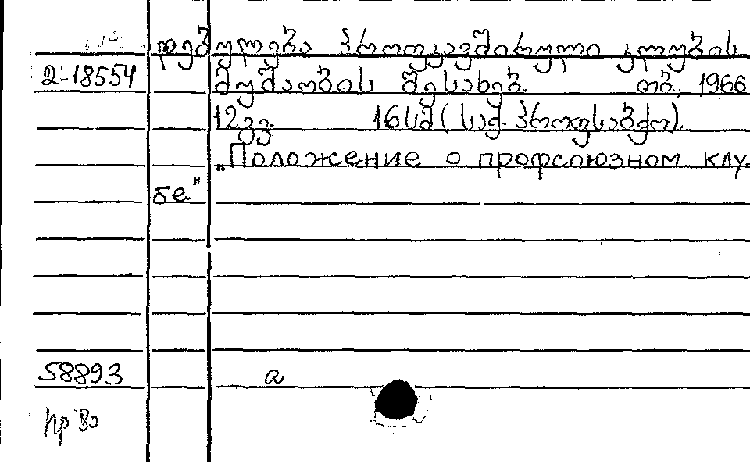 დებულება პროფკავშირული კლუბის
2-18554 მუშაობის შესახებ. თბ. 1966
12გვ. 16სმ (საქ. პროფსაბჭო).
„Положение о профсоюзном клу-
бе"
58893 а